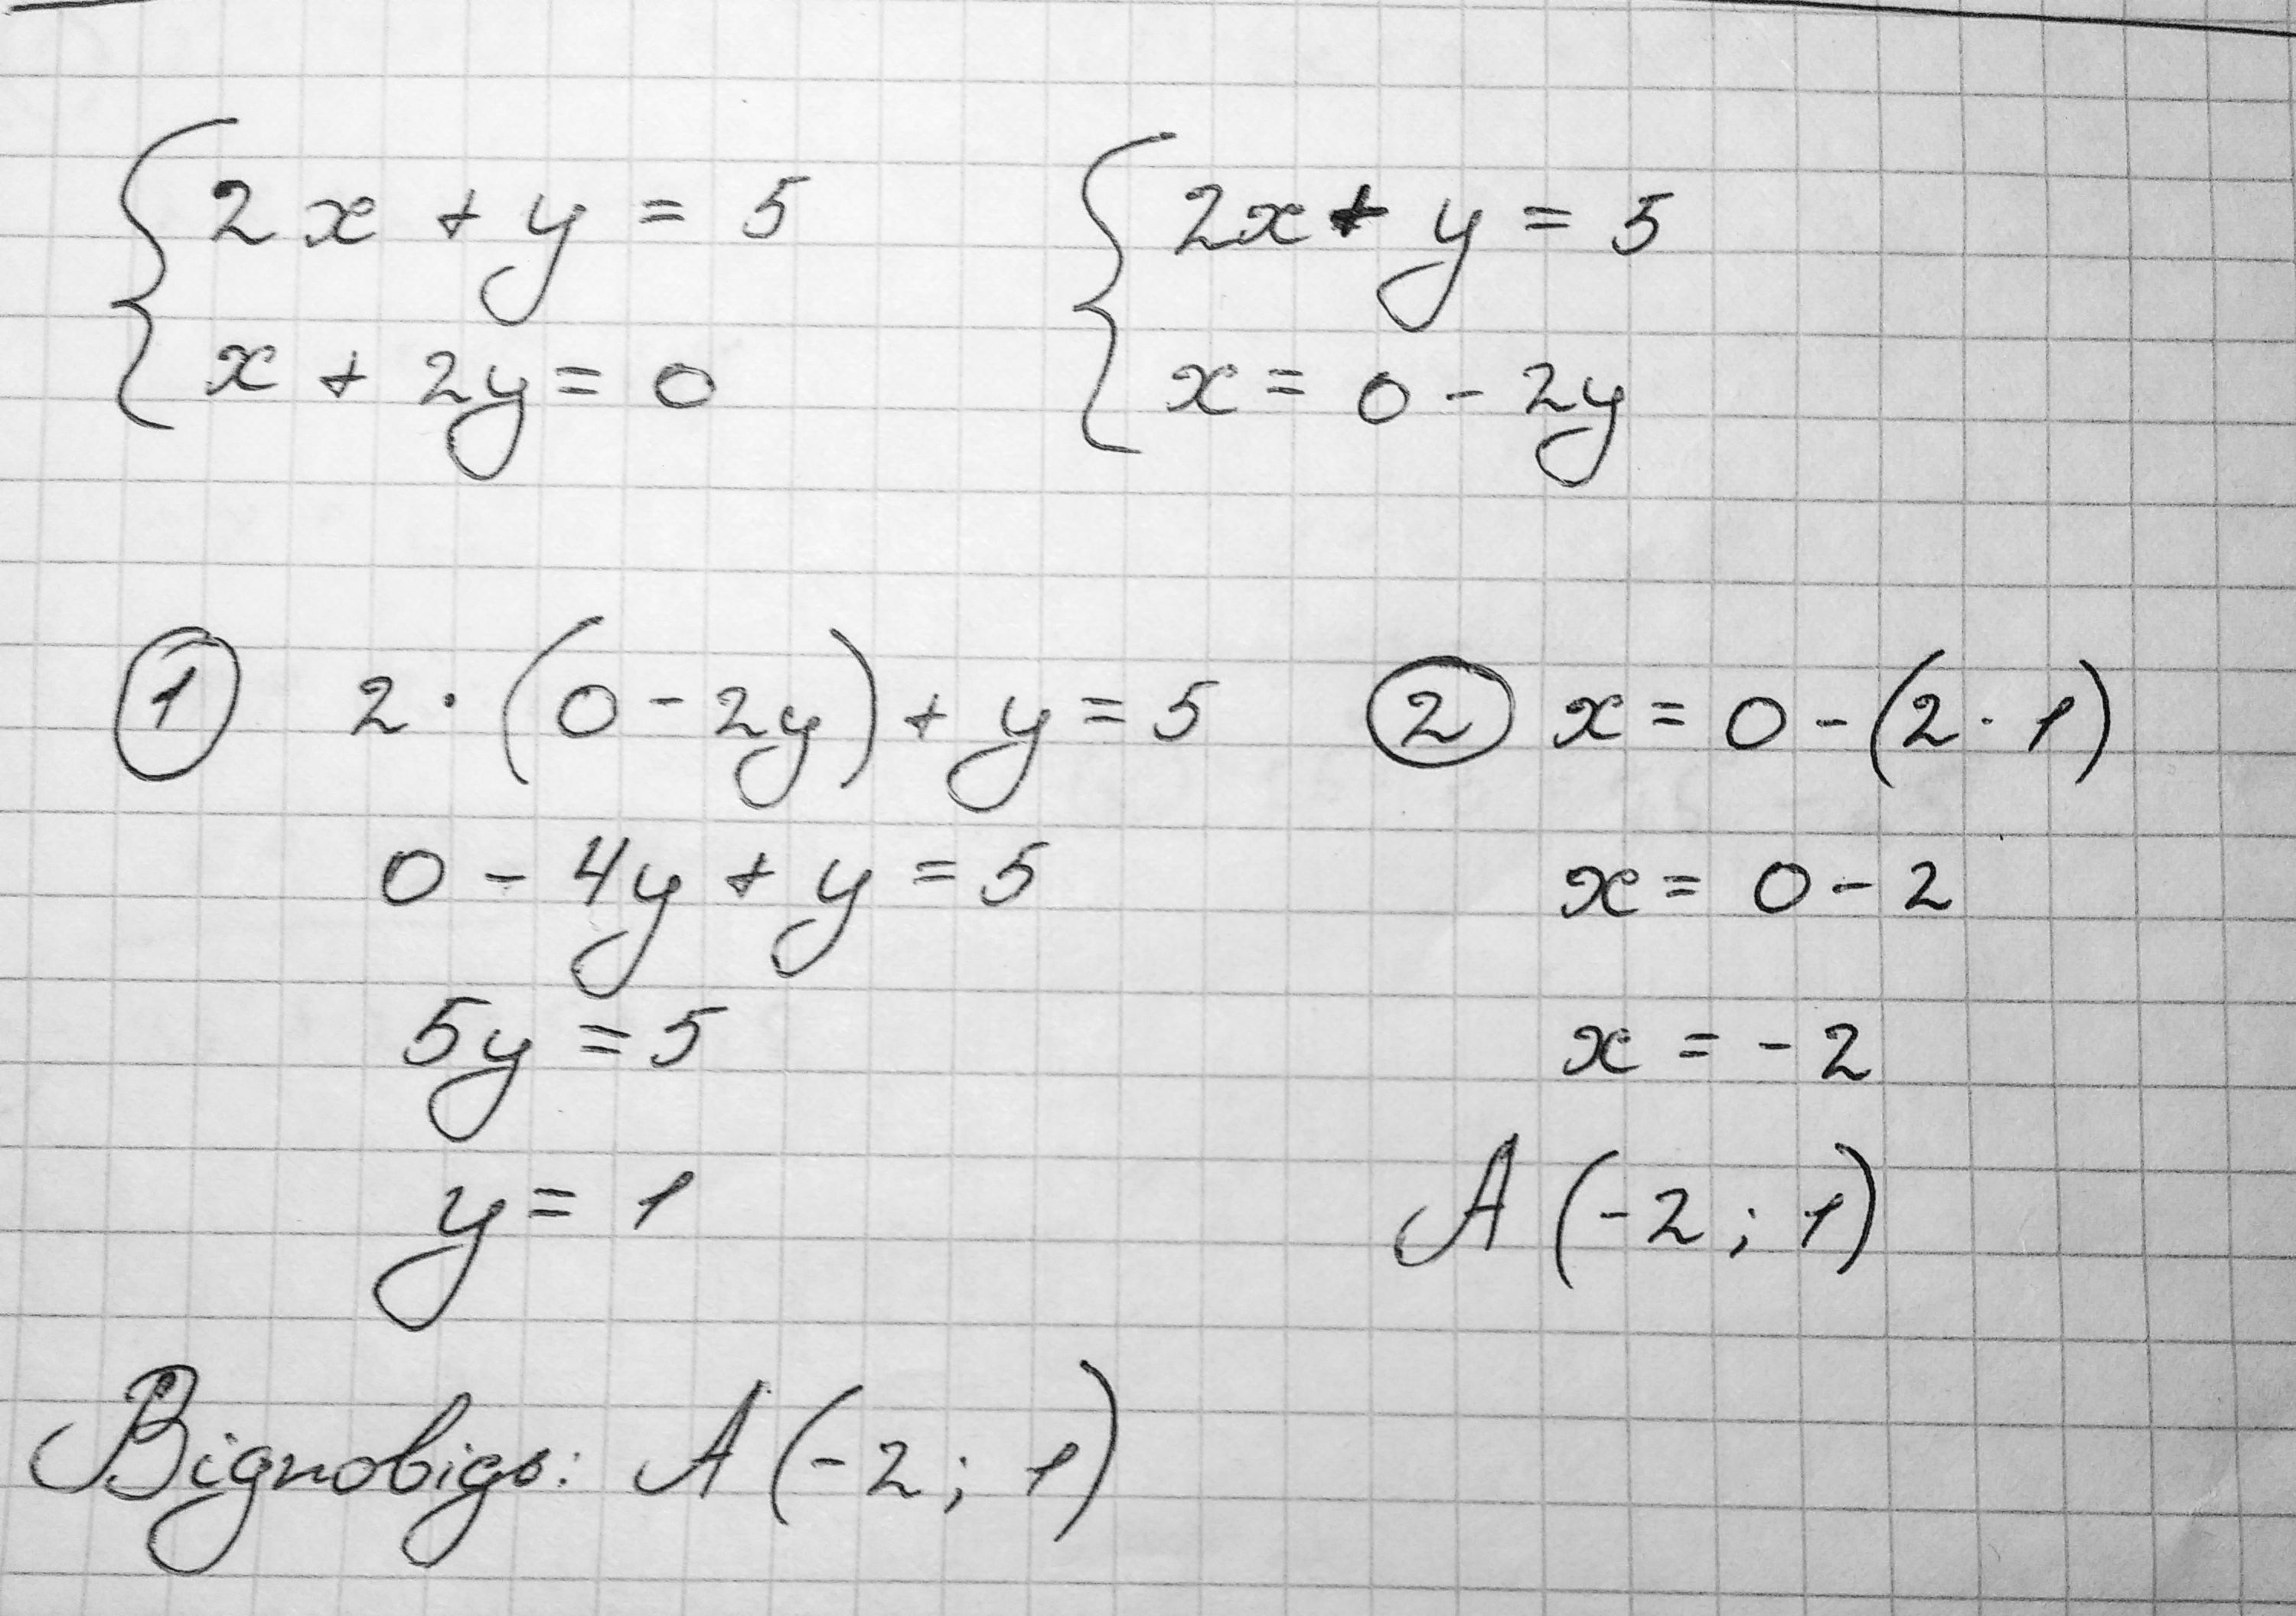 2x + y = 5
x + 2y = 0
2x + y = 5
x = 0 - 2y
1 2 · (0 - 2y) + y = 5
0 - 4y + y = 5
5y = 5
y = 1
2 x = 0 - (2 · 1)
x = 0 - 2
x = -2
A (-2; 1)
Відповідь: A (-2; 1)